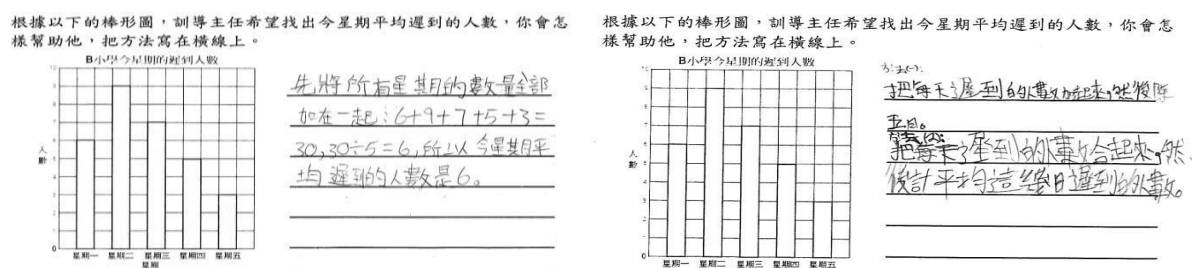 根據以下的棒形圖，訓導主任希望找出今星期平均遲到的人數，你會怎
樣幫助他，把方法寫在橫線上。
B小學今星期的遲到人數
10
9
8
7
6
5
4
3
2
1
0
人數
星期一 星期二 星期三 星期四 星期五
星期
先將所有星期的數量全部
加在一起：6+9+7+5+3=
30，30÷5=6，所以今星期平
均遲到的人數是6。
根據以下的棒形圖，訓導主任希望找出今星期平均遲到的人數，你會怎
樣幫助他，把方法寫在橫線上。
B小學今星期的遲到人數
人數
0
星期一 星期二 星期三 星期四 星期五
星期
方法(一):
把每天遲到的人數加起來，然後除
五日。
方法(二):
把每天遲到的人數合起來，然
後計平均這幾日遲到的人數。